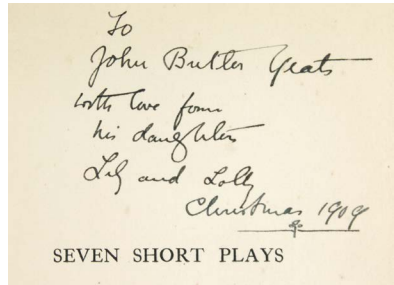 To
John Butler Yeats
with love from
his daughters
Lily and Lolly
Christmas 1909
SEVEN SHORT PLAYS